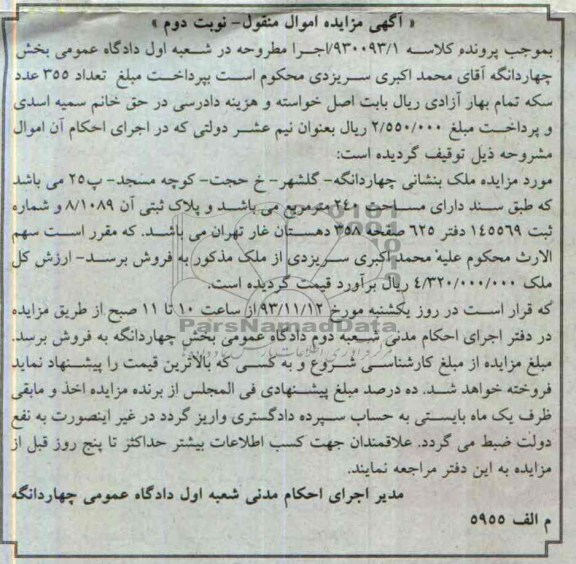 « آگهی مزایده اموال منقول- نوبت دوم »
بموجب پرونده کلاسه ۹۳۰۰۹۳/۱/اجرا مطروحه در شعبه اول دادگاه عمومی بخش
چهاردانگه آقای محمد اکبری سریزدی محکوم است بپرداخت مبلغ تعداد ۳۵۵ عدد
سکه تمام بهار آزادی ریال بابت اصل خواسته و هزینه دادرسی در حق خانم سمیه اسدی
و پرداخت مبلغ ۲/۵۵۰/۰۰۰ ریال بعنوان نیم عشر دولتی که در اجرای احکام آن اموال
مشروحه ذیل توقیف گردیده است:
مورد مزایده ملک بنشانی چهاردانگه- گلشهر- خ حجت- کوچه مسجد- پ۲۵ می باشد
که طبق سند دارای مساحت ۲۴۰ مترمربع می باشد و پلاک ثبتی آن ۸/۱۰۸۹ و شماره
ثبت ۱۴۵۵۶۹ دفتر ۶۲۵ صفحه ۳۵۸ دهستان غار تهران می باشد. که مقرر است سهم
الارث محکوم علیه محمد اکبری سریزدی از ملک مذکور به فروش برسد- ارزش کل
ملک ۴/۳۲۰/۰۰۰/۰۰۰ ریال برآورد قیمت گردیده است.
که قرار است در روز یکشنبه مورخ ۹۳/۱۱/۱۲ از ساعت ۱۰ تا ۱۱ صبح از طریق مزایده
در دفتر اجرای احکام مدنی شعبه دوم دادگاه عمومی بخش چهاردانگه به فروش برسد.
ParsNamadData
مبلغ مزایده از مبلغ کارشناسی شروع و به کسی که بالاترین قیمت را پیشنهاد نماید
فروخته خواهد شد. ده درصد مبلغ پیشنهادی فی المجلس از برنده مزایده اخذ و مابقی
ظرف یک ماه بایستی به حساب سپرده دادگستری واریز گردد در غیر اینصورت به نفع
دولت ضبط می گردد. علاقمندان جهت کسب اطلاعات بیشتر حداکثر تا پنج روز قبل از
مزایده به این دفتر مراجعه نمایند.
مدیر اجرای احکام مدنی شعبه اول دادگاه عمومی چهاردانگه
م الف ۵۹۵۵